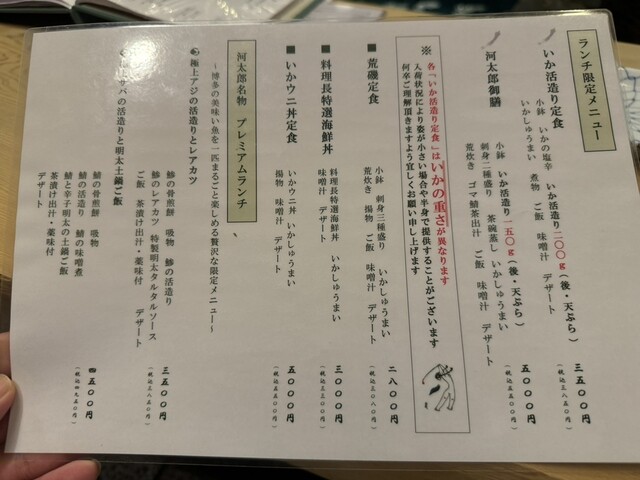 ランチ限定メニュー
いか活造り定食
小鉢 いかの塩辛 いか活造り二〇〇g(後・天ぷら)
いかしゅうまい 煮物 ご飯 味噌汁 デザート
三五〇〇円
(税込三八五〇円)
河太郎御膳
小鉢 いか活造り一五〇g(後・天ぷら)
刺身二種盛り 茶碗蒸し いかしゅうまい
荒炊き ゴマ鯖茶出汁 ご飯 味噌汁 デザート
五〇〇〇円
(税込五五〇〇円)
※ 各「いか活造り定食」はいかの重さが異なります
入荷状況により姿が小さい場合や半身で提供することがございます
何卒ご理解頂きますよう宜しくお願い申し上げます
■ 荒磯定食
小鉢 刺身三種盛り いかしゅうまい
荒炊き 揚物 ご飯 味噌汁 デザート
二八〇〇円
(税込三〇八〇円)
■ 料理長特選海鮮丼
料理長特選海鮮丼 いかしゅうまい
味噌汁 デザート
三〇〇〇円
(税込三三〇〇円)
■ いかウニ丼定食
いかウニ丼 いかしゅうまい
揚物 味噌汁 デザート
五〇〇〇円
(税込五五〇〇円)
河太郎名物 プレミアムランチ
~博多の美味い魚を一匹まるごと楽しめる贅沢な限定メニュー~
極上アジの活造りとレアカツ
鯵の骨煎餅 吸物 鯵の活造り
鯵のレアカツ 特製明太タルタルソース
ご飯 茶漬け出汁・薬味付 デザート
三五〇〇円
(税込三八五〇円)
サバの活造りと明太土鍋ご飯
鯖の骨煎餅 吸物
鯖の活造り 鯖の味噌煮
鯖と辛子明太の土鍋ご飯
茶漬け出汁・薬味付
デザート
四五〇〇円
(税込四九五〇円)